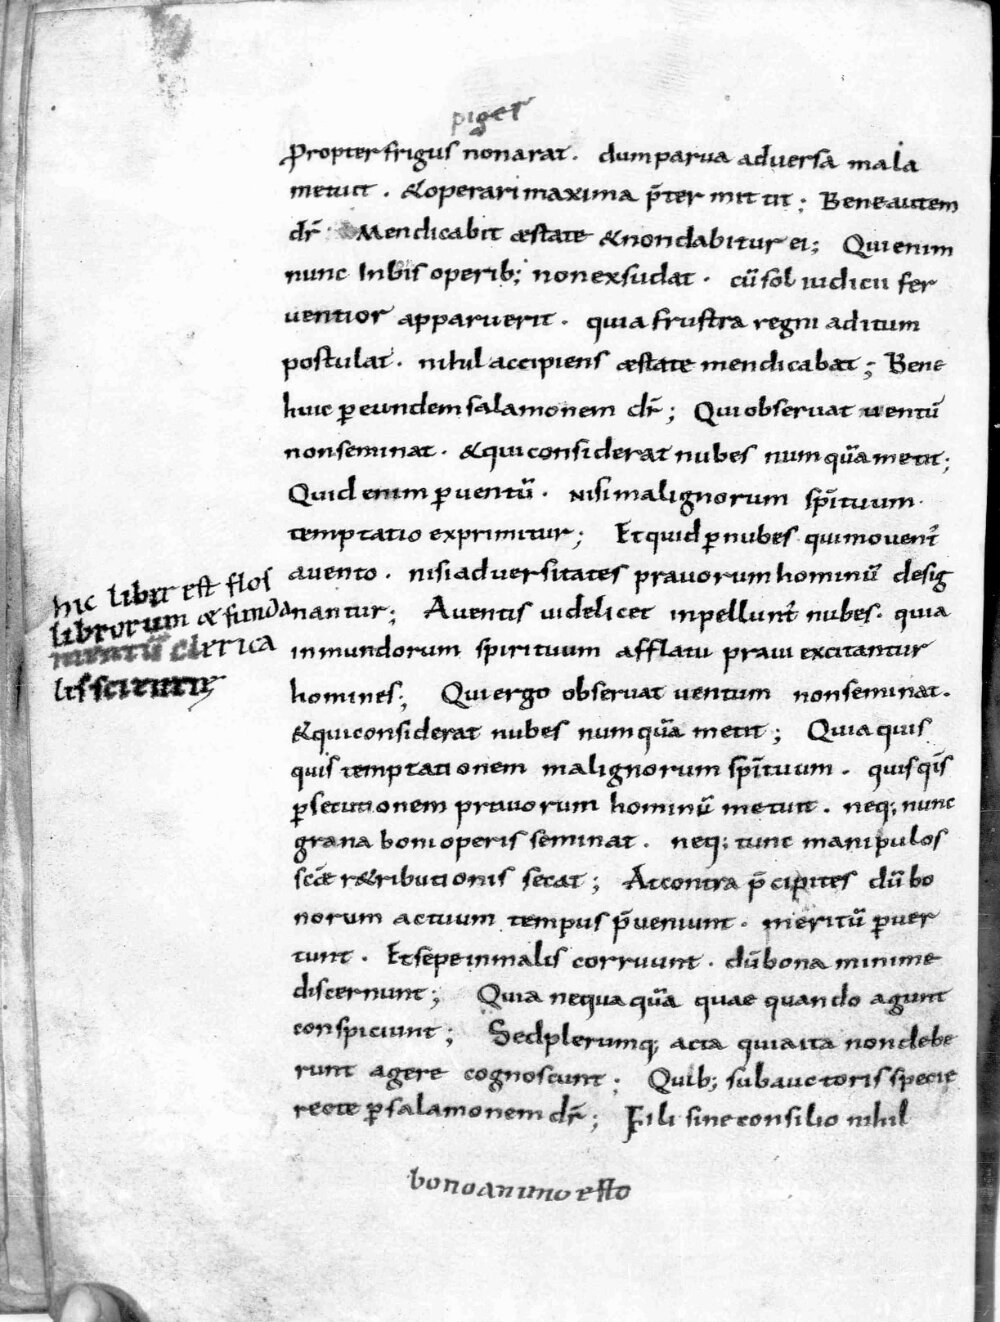 piger
Propter frigus non arat. dum parua aduersa mala
metuit. & operari maxima p̄termittit; Bene autem
dr̄. Mendicabit æstate & non dabitur ei; Qui enim
nunc In bis operib; non exsudat. cū sol iudicii fer
uentior apparuerit. quia frustra regni aditum
postulat. nihil accipiens æstate mendicabat; Bene
huic ꝑ eundem salamonem dr̄; Qui obseruat uentū
non seminat. & qui considerat nubes numquā metit;
Quid enim ꝑ uentū. nisi malignorum sp̄ituum
temptatio exprimitur; Et quid ꝑ nubes qui mouent̄
a uento. nisi aduersitates prauorum hominū desig
nantur; A uentis uidelicet inpellunt̄ nubes. quia
inmundorum spirituum afflatu praui excitantur
homines; Qui ergo obseruat uentum non seminat.
& qui considerat nubes numquā metit; Quia quis
quis temptationem malignorum sp̄ituum. quisqīs
ꝑsecutionem prauorum hominū metuit. neq; nunc
grana boni operis seminat. neq; tunc manipulos
scǣ r&ributionis secat; At contra p̄cipites dū bo
norum actuum tempus p̄ueniunt. meritū ꝑuer
tunt. Et sepe in malis corruunt. dū bona minime
discernunt; Quia nequaquā quae quando agunt
conspiciunt; Sed plerumq; acta quia ita non debe
runt agere cognoscunt; Quib; sub auctoris specie
recte ꝑ salamonem dr̄; Fili sine consilio nihil
hic liber est flos
librorum & funda
mentū clerica
lis
bono animo esto